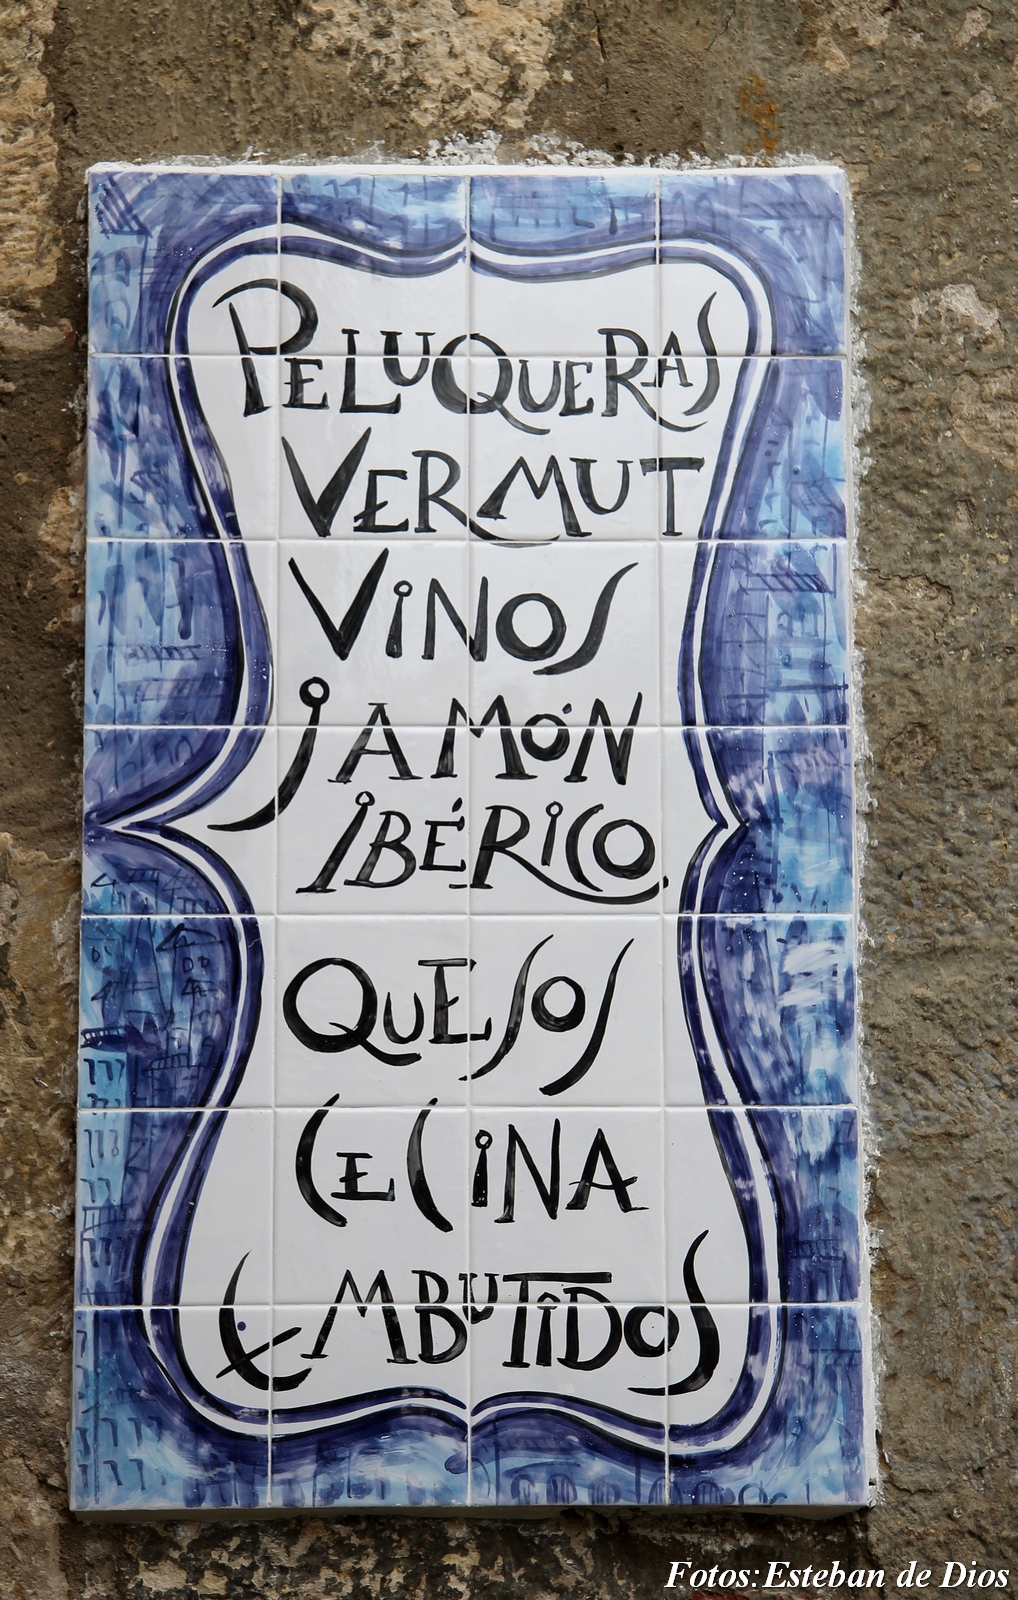 PELUQUERAS
VERMUT
ViNOS
jAMÓN
iBÉRiCO.
QUESOS
CECiNA
EMBUTiDOS
Fotos:Esteban de Dios